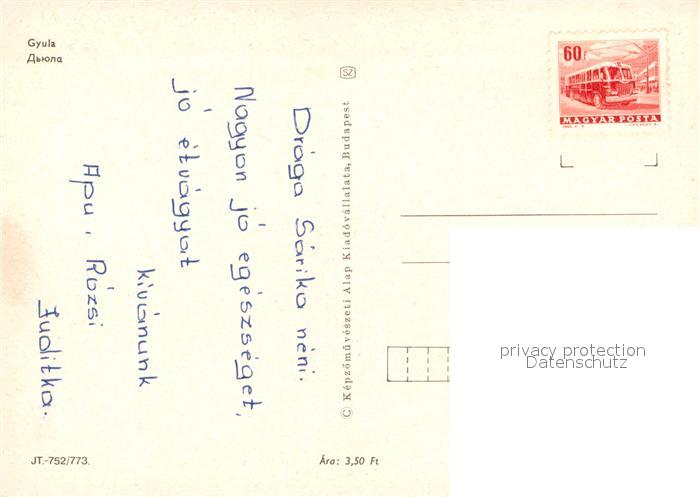 Gyula
Дьюла
Drága Sárika néni.
Nagyon jó egészséget,
jó étvágyat
kívánunk
Apu, Rózsi
Juditka.
JT.-752/773.
Ára: 3,50 Ft
SZ
© Képzőművészeti Alap Kiadóvállalata, Budapest
60f
MAGYAR POSTA
privacy protection
Datenschutz